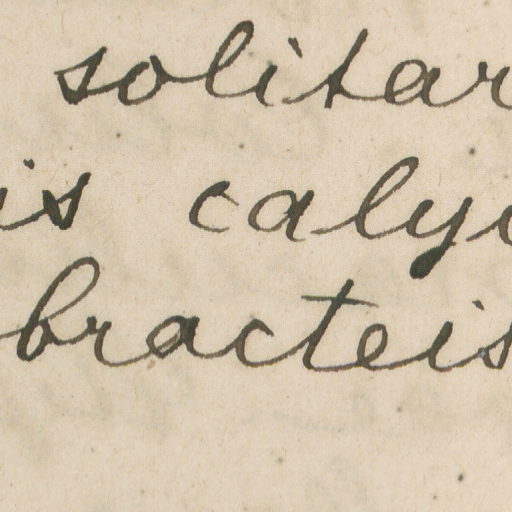 solitar
is calyc
bracteis